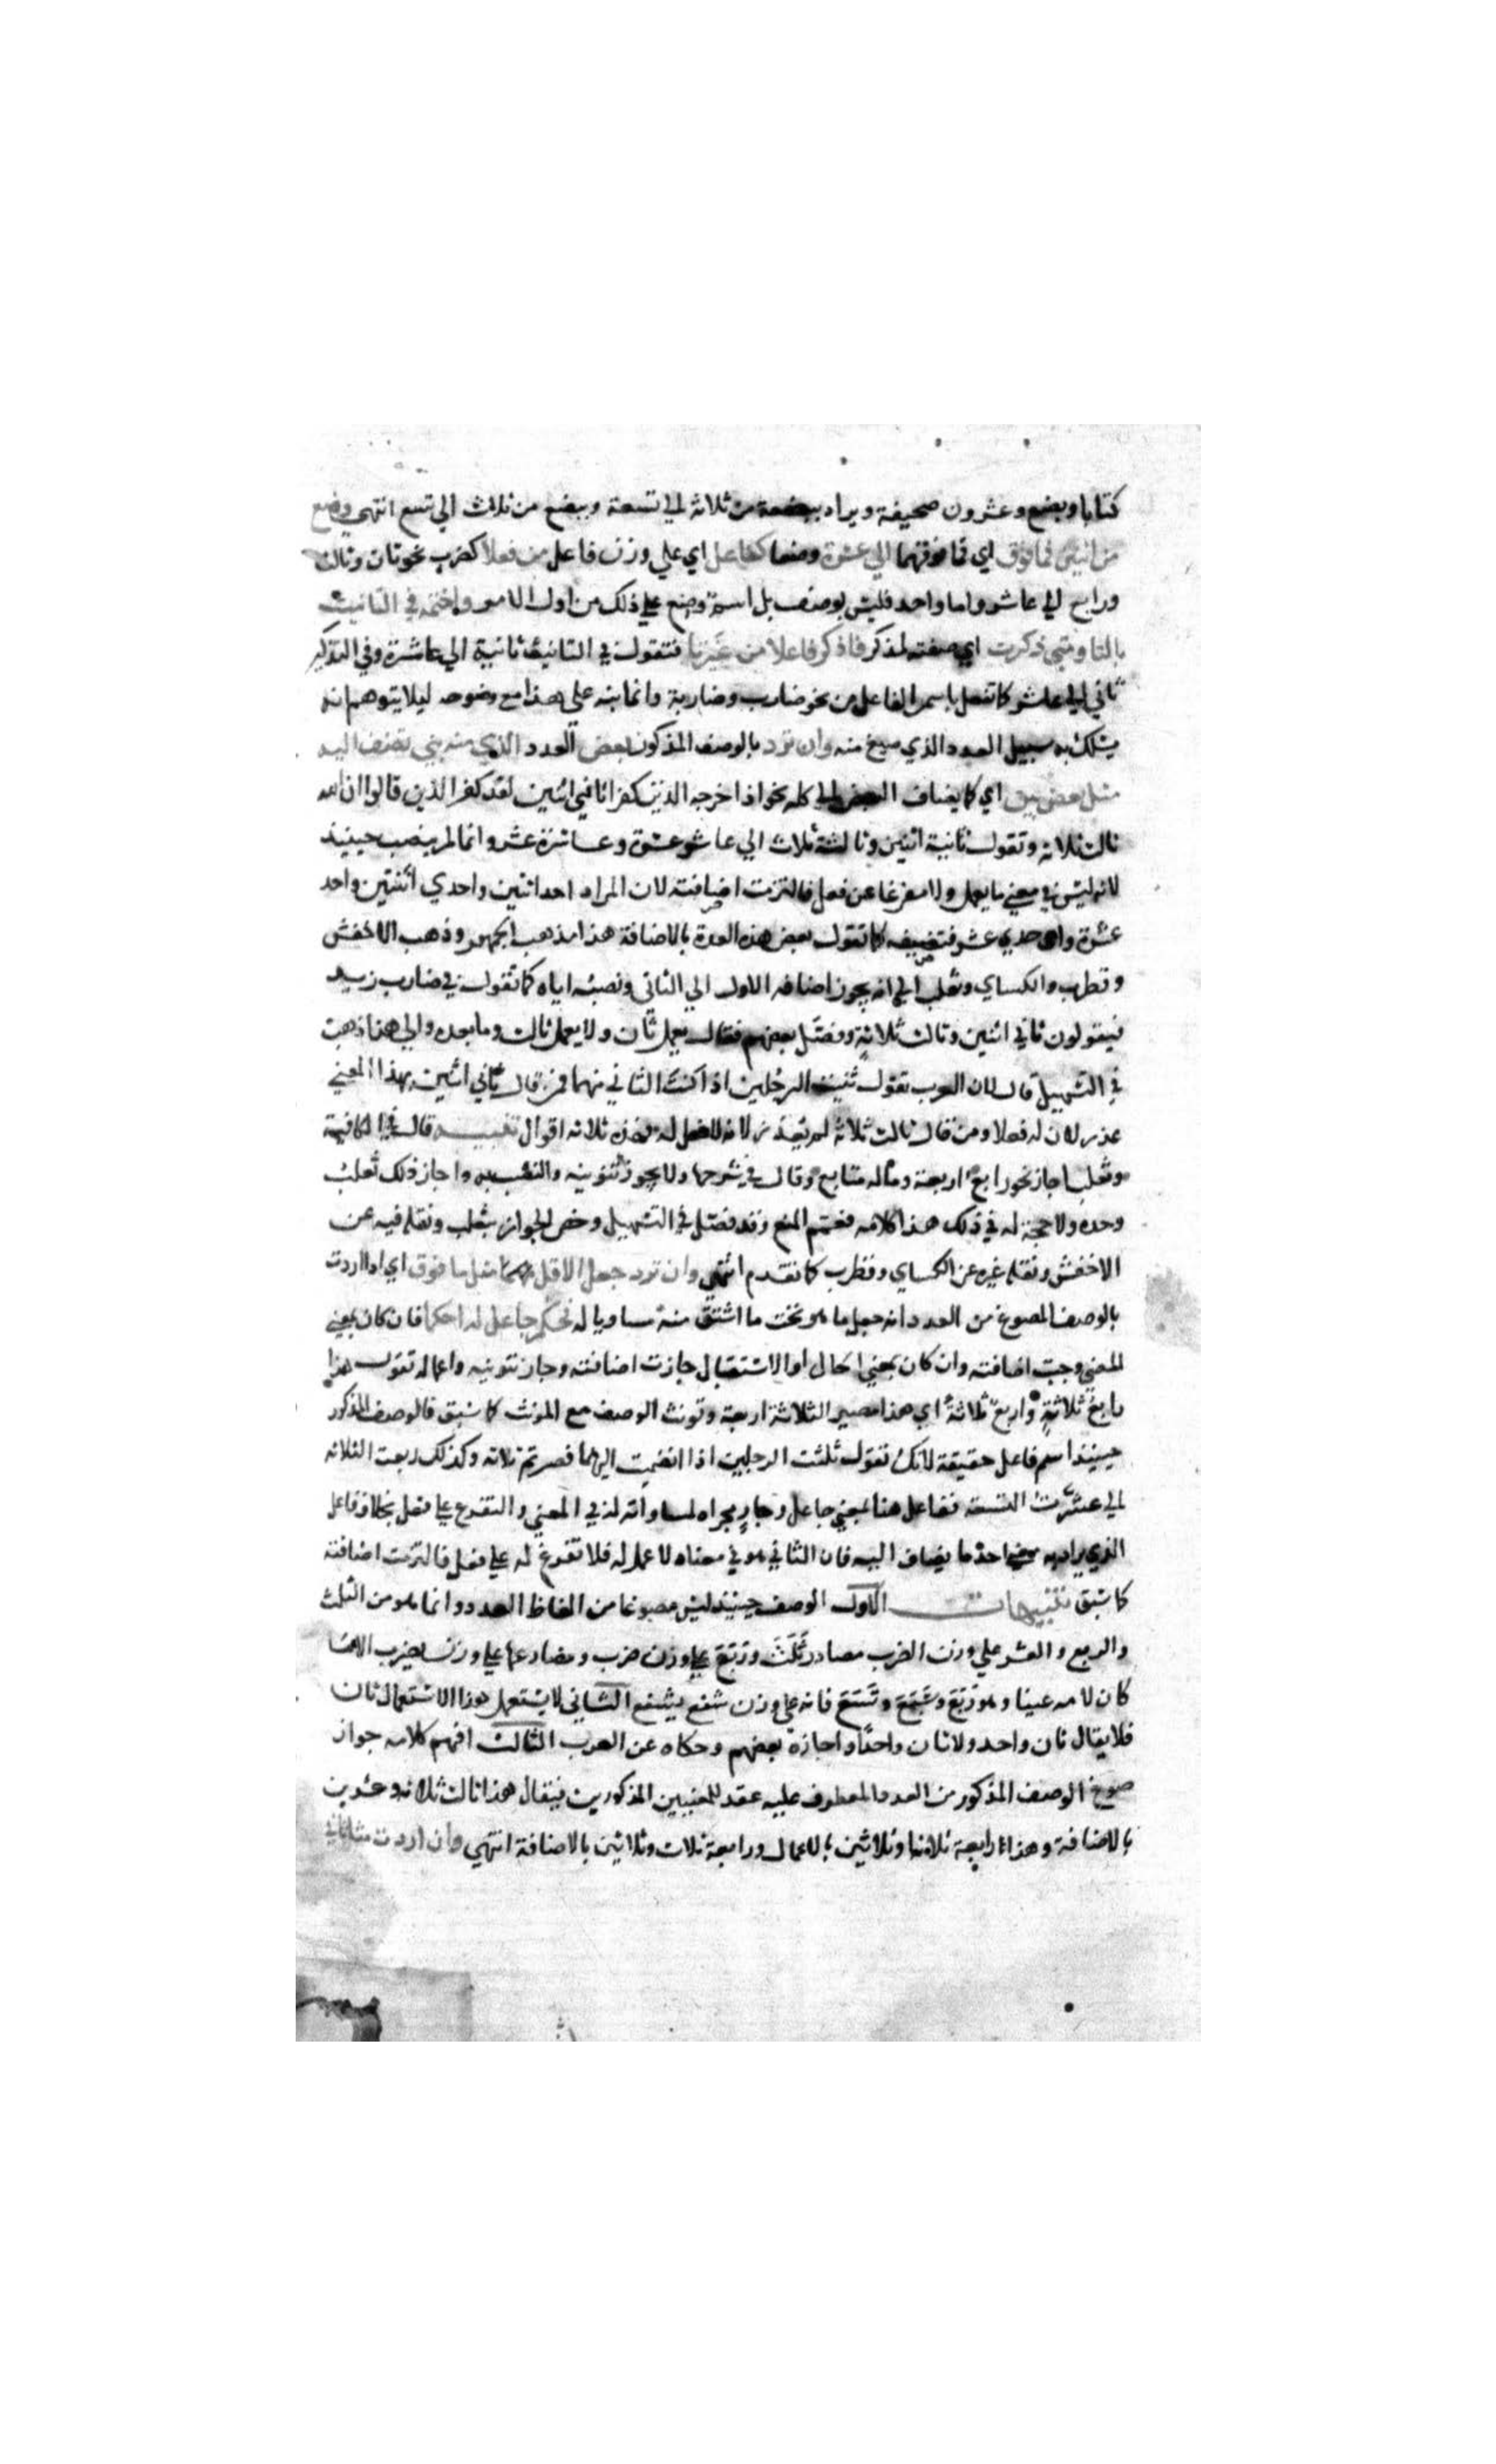 كتابا وبضع وعشرون صحيفة ويراد ببضعة من ثلاثة الي تسعة وببضع من ثلاث الي تسع انتهي وصغ
من اثنين فما فوق اي فما فوقهما الي عشرة وصفا كفاعل اي علي وزن فاعل من فعلا كضرب نحو ثان وثالث
ورابع الي عاشر واما واحد فليس بوصف بل اسم وضع علي ذلك من اول الامر واختمه في التانيث
بالتا ومتي ذكرت اي صفته لمذكر فاذكر فاعلا من غير تا فتقول في التانيث ثانية الي عاشرة وفي التذكير
ثاني الي عاشر كما تفعل باسم الفاعل من نحو ضارب وضاربة وانما نبه علي هذا مع وضوحه ليلا يتوهم انه
يسلك به سبيل العدد الذي صيغ منه وان ترد بالوصف المذكور بعض العدد الذي منه بني تضف اليه
مثل بعض بين اي كما يضاف البعض الي كله نحو اذ اخرجه الذين كفروا ثاني اثنين لقد كفر الذين قالوا ان الله
ثالث ثلاثة وتقول ثانية اثنين وثالثة ثلاث الي عاشر عشرة وعاشرة عشر وانما لم ينصب حينيذ
لانه ليس في معني ما يعمل ولا مفرغا عن فعل فالتزمت اضافته لان المراد احد اثنين واحدي اثنتين واحد
عشرة واحدي عشر فتضيفه كما تقول بعض هذه العدة بالاضافة هذا مذهب الجمهور وذهب الاخفش
وقطرب والكساي وثعلب الي انه يجوز اضافه الاول الي الثاني ونصبه اياه كما تقول في ضارب زيد
فيقولون ثاني اثنين وثالث ثلاثة وفصل بعضهم فقال يعمل ثان ولا يعمل ثالث وما بعده والي هذا ذهب
في التسهيل قال لان العرب تقول ثنيت الرجلين اذا كنت الثاني منهما فمن قال ثاني اثنين بهذا المعني
عذر لان له فعلا ومن قال ثالث ثلاثة لم يعذر لانه لا فعل له فهذه ثلاثه اقوال تنبيه قال في الكافية
وثعلب اجاز نحو رابع اربعة وماله متابع وقال في شرحها ولا يجوز تنوينه والنصب به واجاز ذلك ثعلب
وحده ولا حجة له في ذلك هذا كلامه فعمم المنع وقد فصل في التسهيل وخص الجواز بثعلب ونقله فيه عن
الاخفش ونقله غيره عن الكساي وقطرب كما تقدم انتهي وان ترد جعل الاقل مثل ما فوق اي اذا اردت
بالوصف المصوغ من العدد انه جعل ما هو تحت ما اشتق منه مساويا له فحكم جاعل له احكما فان كان بمعني
المضي وجبت اضافته وان كان بمعني الحال او الاستقبال جازت اضافته وجاز تنوينه واعماله تقول هذا
رابع ثلاثة ورابع ثلاثة اي هذا مصير الثلاثة اربعة وتونث الوصف مع المونث كما سبق فالوصف المذكور
حينيذ اسم فاعل حقيقة لانك تقول ثلثت الرجلين اذا انضمت اليهما فصرتم ثلاثه وكذلك ربعت الثلاثه
الي عشرت التسعة ففاعل هنا بمعني جاعل وجار مجراه لمساواته له في المعني والتفرع علي فعل بخلاف فاعل
الذي يراد به معني احد ما يضاف اليه فان الثاني هو في معناه لا عمل له فلا تفرغ له علي فعل فالتزمت اضافته
كما سبق تنبيهات الاول الوصف حينيذ ليس مصوغا من الفاظ العدد وانما هو من الثلث
والربع والعشر علي وزن الضرب مصادر ثلث وربع علي وزن ضرب ومضارعها علي وزن يضرب الا ما
كان لامه عينا وهو ربع وسبع وتسع فانه علي وزن شفع يشفع الثاني لا يستعمل هذا الاستعمال ثان
فلا يقال ثان واحد ولا ثان واحدا واجازه بعضهم وحكاه عن العرب الثالث افهم كلامه جواز
صوغ الوصف المذكور من العدد المعطوف عليه عقد للمعنيين المذكورين فيقال هذا ثالث ثلاثة وعشرين
بالاضافة وهذا رابعة ثلاثا وثلاثين بالاعمال ورابعة ثلاث وثلاثين بالاضافة انتهي وان اردت مثل ثاني